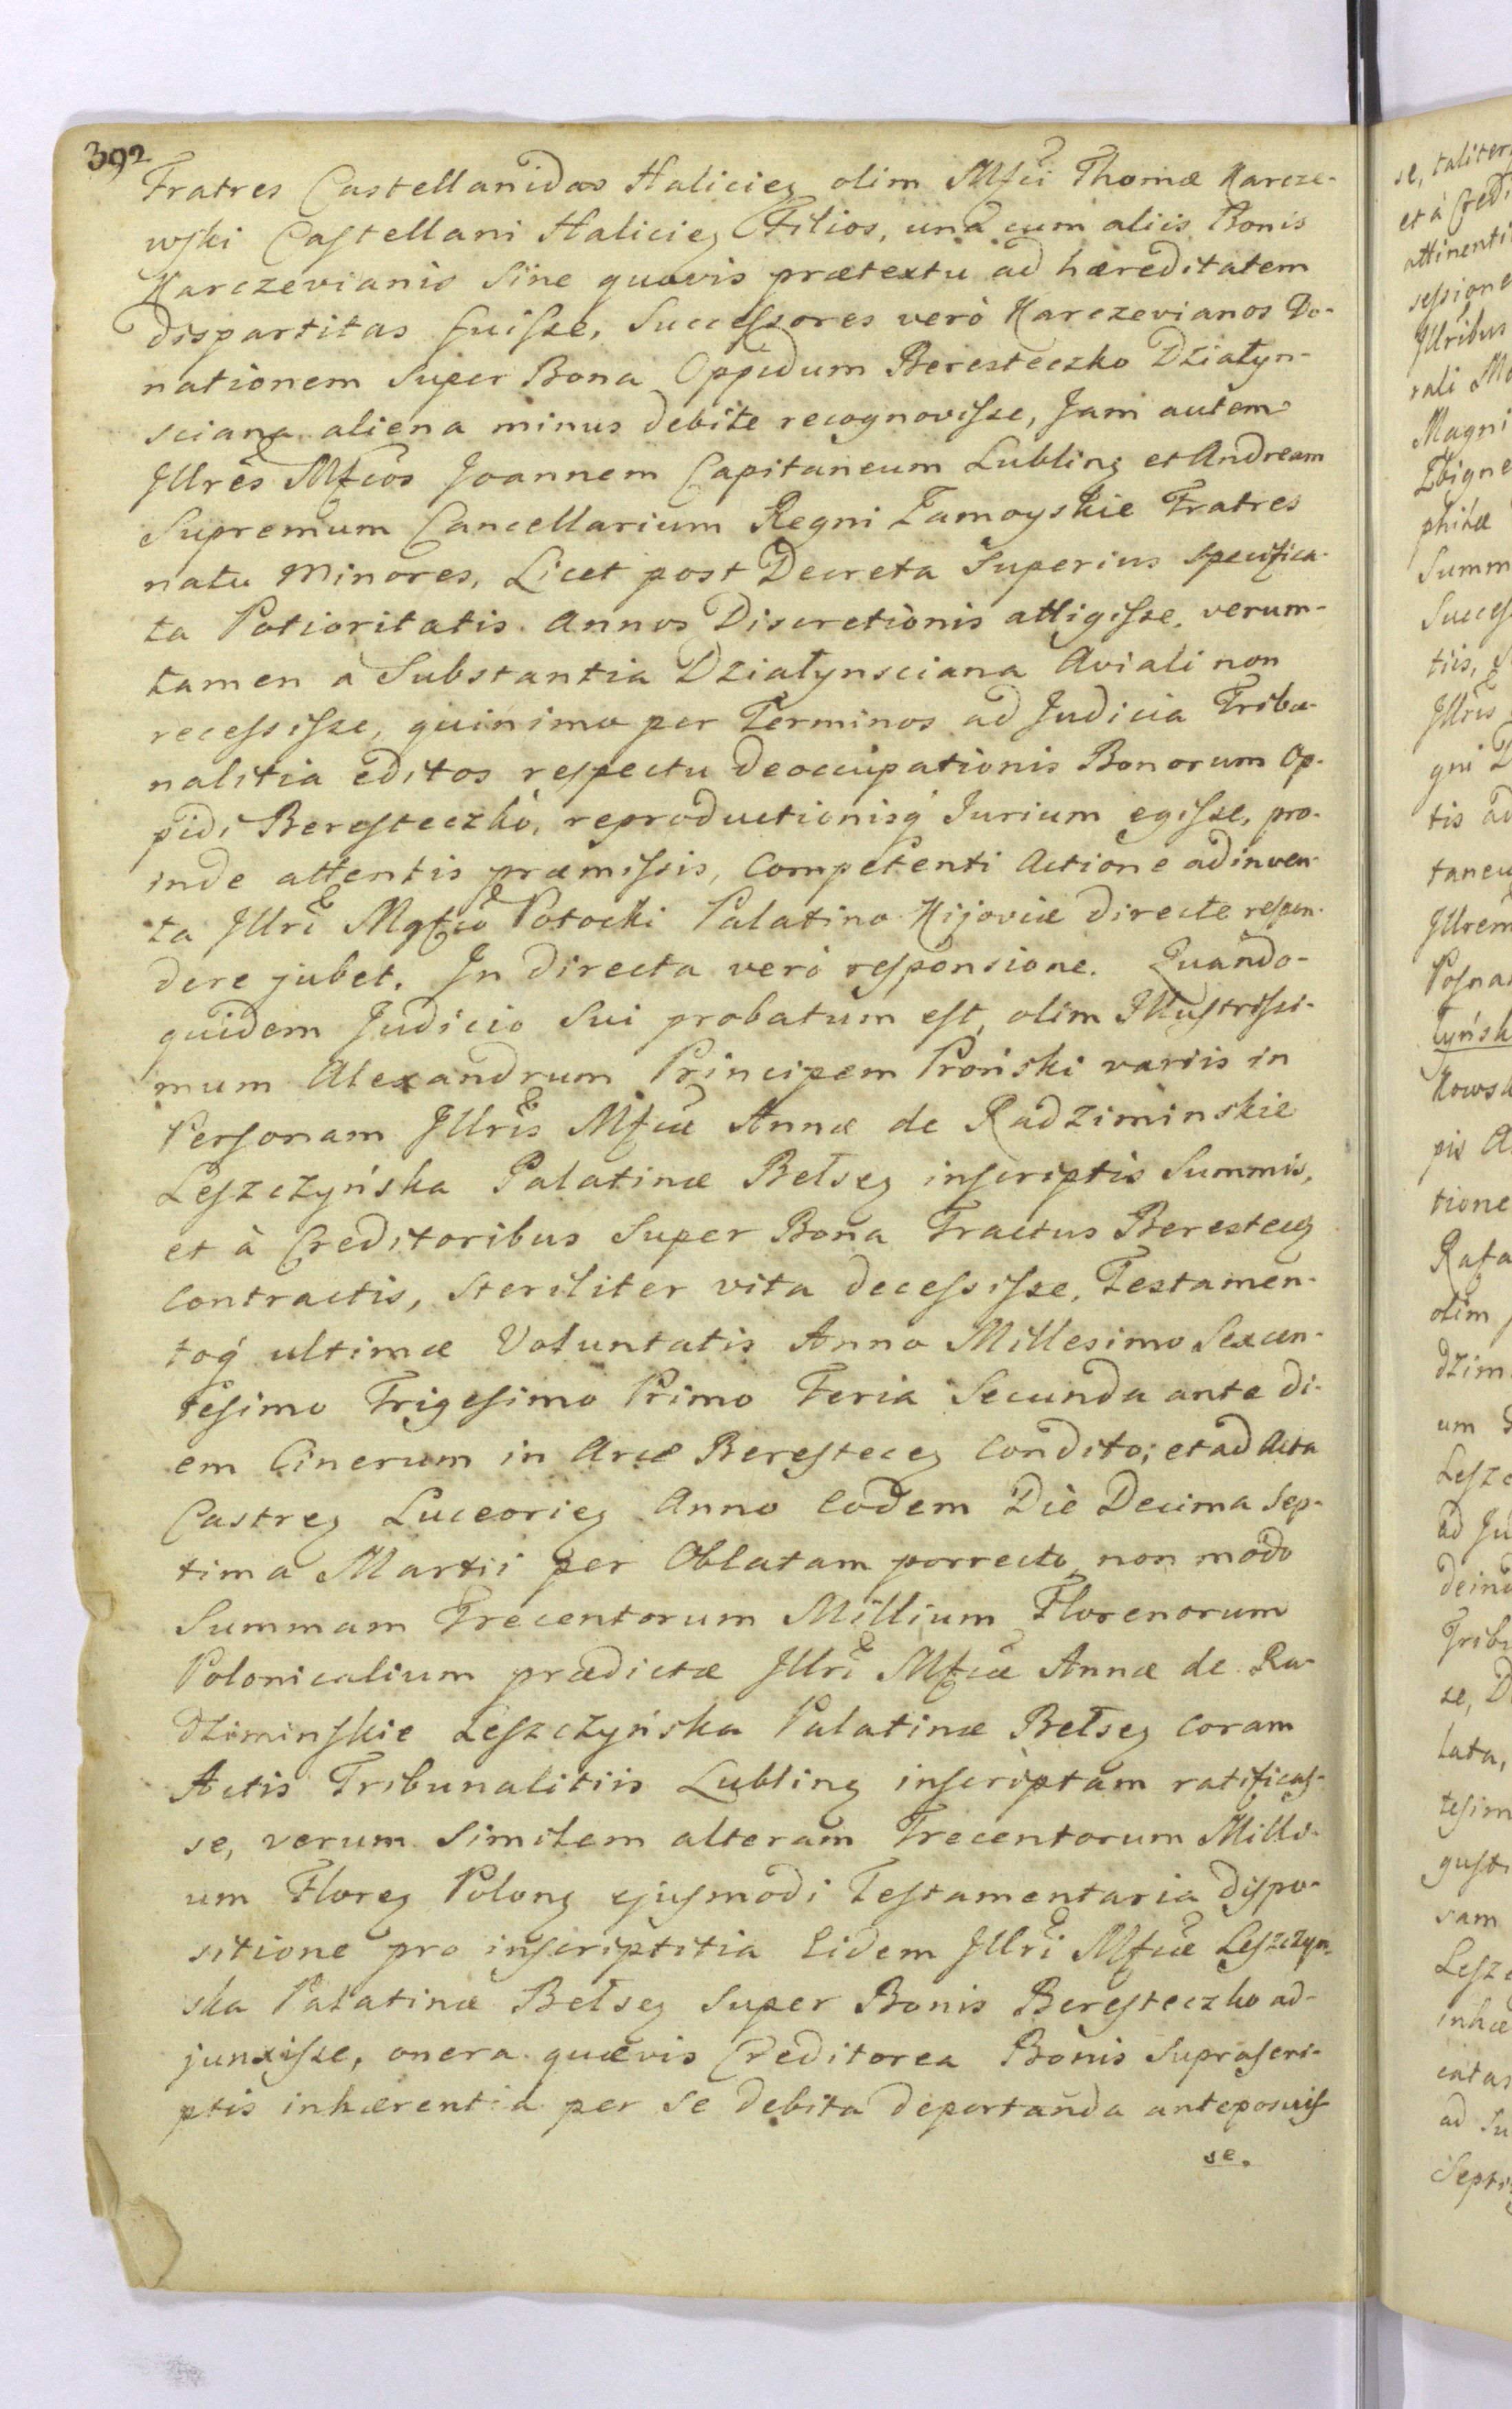 392
Fratres Castellanidas Halicieȝ olim Mfci Thomæ Karcze-
wski Castellani Halicieȝ Filios, una cum aliis Bonis
Karczevianis Sine quovis prætextu ad hæreditatem
dispartitas fuisse, Successores verò Karczevianos Do-
nationem Super Bona Oppidum Beresteczko Działyn-
sciana aliena minus debite recognovisse, Jam autem
Jllres Mfcos Joannem Capitaneum Lubling et Andream
Supremum Cancellarium Regni Zamoyskie Fratres
natu Minores, Licet post Decreta Superius specifica-
ta Potioritatis Annos Discretionis attigisse, verum-
tamen a Substantia Działynsciana Aviali non
recessisse, quinimo per Terminos ad Judicia Tribu-
nalitia editos respectu deoccupationis Bonorum Op-
pidi Beresteczko, reproductionisq́ Jurium egisse, pro-
inde attentis præmissis, Competenti Actione adinven-
ta Jllri Mgfco Potocki Palatino Kijoviæ directe respon-
dere jubet. Jn directa verò responsione. Quando-
quidem Judicio Sui probatum est, olim Jllustrissi-
mum Alexandrum Principem Proński variis in
Personam Jllris Mfcæ Annæ de Radziminskie
Leszczyńska Palatinæ Bełseȝ inscriptis Summis,
et à Creditoribus Super Bona Tractus Beresteceȝ
Contractis, Steriliter vita decessisse, Testamen-
toq́ ultimæ Voluntatis Anno Millesimo Sexcen-
tesimo Trigesimo Primo Feria Secunda ante di-
em Cinerum in Arce Beresteceȝ Condito; et ad Acta
Castreȝ Luceorieȝ Anno Eodem Die Decima Sep-
tima Martii per Oblatam porrecto, non modo
Summam Trecentorum Millium Florenorum
Polonicalium prædictæ Jllri Mfcæ Annæ de Ra-
dziminskie Leszczyńska Palatinæ Bełseȝ Coram
Actis Tribunalitiis Lubling inscriptam ratificas-
se, verum Similem alteram Trecentorum Milli-
um Floreȝ Polonȝ ejusmodi Testamentaria dispo-
sitione pro inscriptitia Eidem Jllri Mfcæ Leszczyn-
ska Palatinæ Bełseȝ Super Bonis Beresteczko ad-
junxisse, onera quævis Creditorea Bonis Suprascri-
ptis inhærentia per se debita deportanda anteposuis-
se.